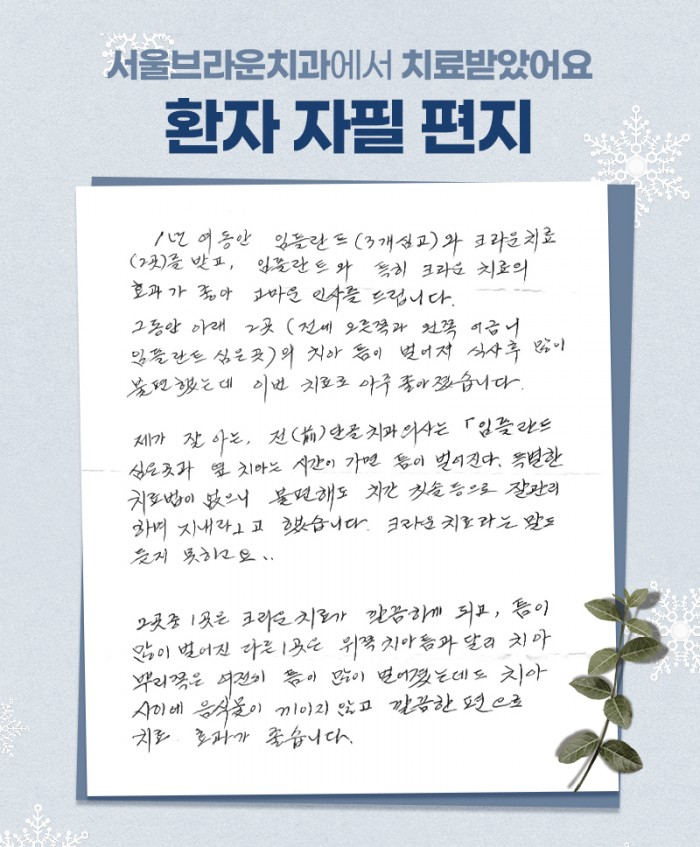 서울브라운치과에서 치료받았어요
환자 자필 편지
1년 여동안 임플란트(3개심고)와 크라운치료
(2곳)를 받고, 임플란트와 특히 크라운 치료의
효과가 좋아 고마운 인사를 드립니다.
그동안 아래 2곳 (전에 오른쪽과 왼쪽 어금니
임플란트 심은곳)의 치아 틈이 벌어져 식사후 많이
불편했는데 이번 치료로 아주 좋아졌습니다.
제가 잘 아는, 전(前)단골치과의사는 「임플란트
심은곳과 옆 치아는 시간이 가면 틈이 벌어진다. 특별한
치료법이 없으니 불편해도 치간 칫솔등으로 잘관리
하며 지내라」고 했습니다. 크라운치료라는 말도
듣지 못하고요..
2곳중 1곳은 크라운치료가 깔끔하게 되고, 틈이
많이 벌어진 다른1곳은 위쪽치아틈과 달리 치아
뿌리쪽은 여전히 틈이 많이 벌어졌는데도 치아
사이에 음식물이 끼이지 않고 깔끔한 편으로
치료 효과가 좋습니다.